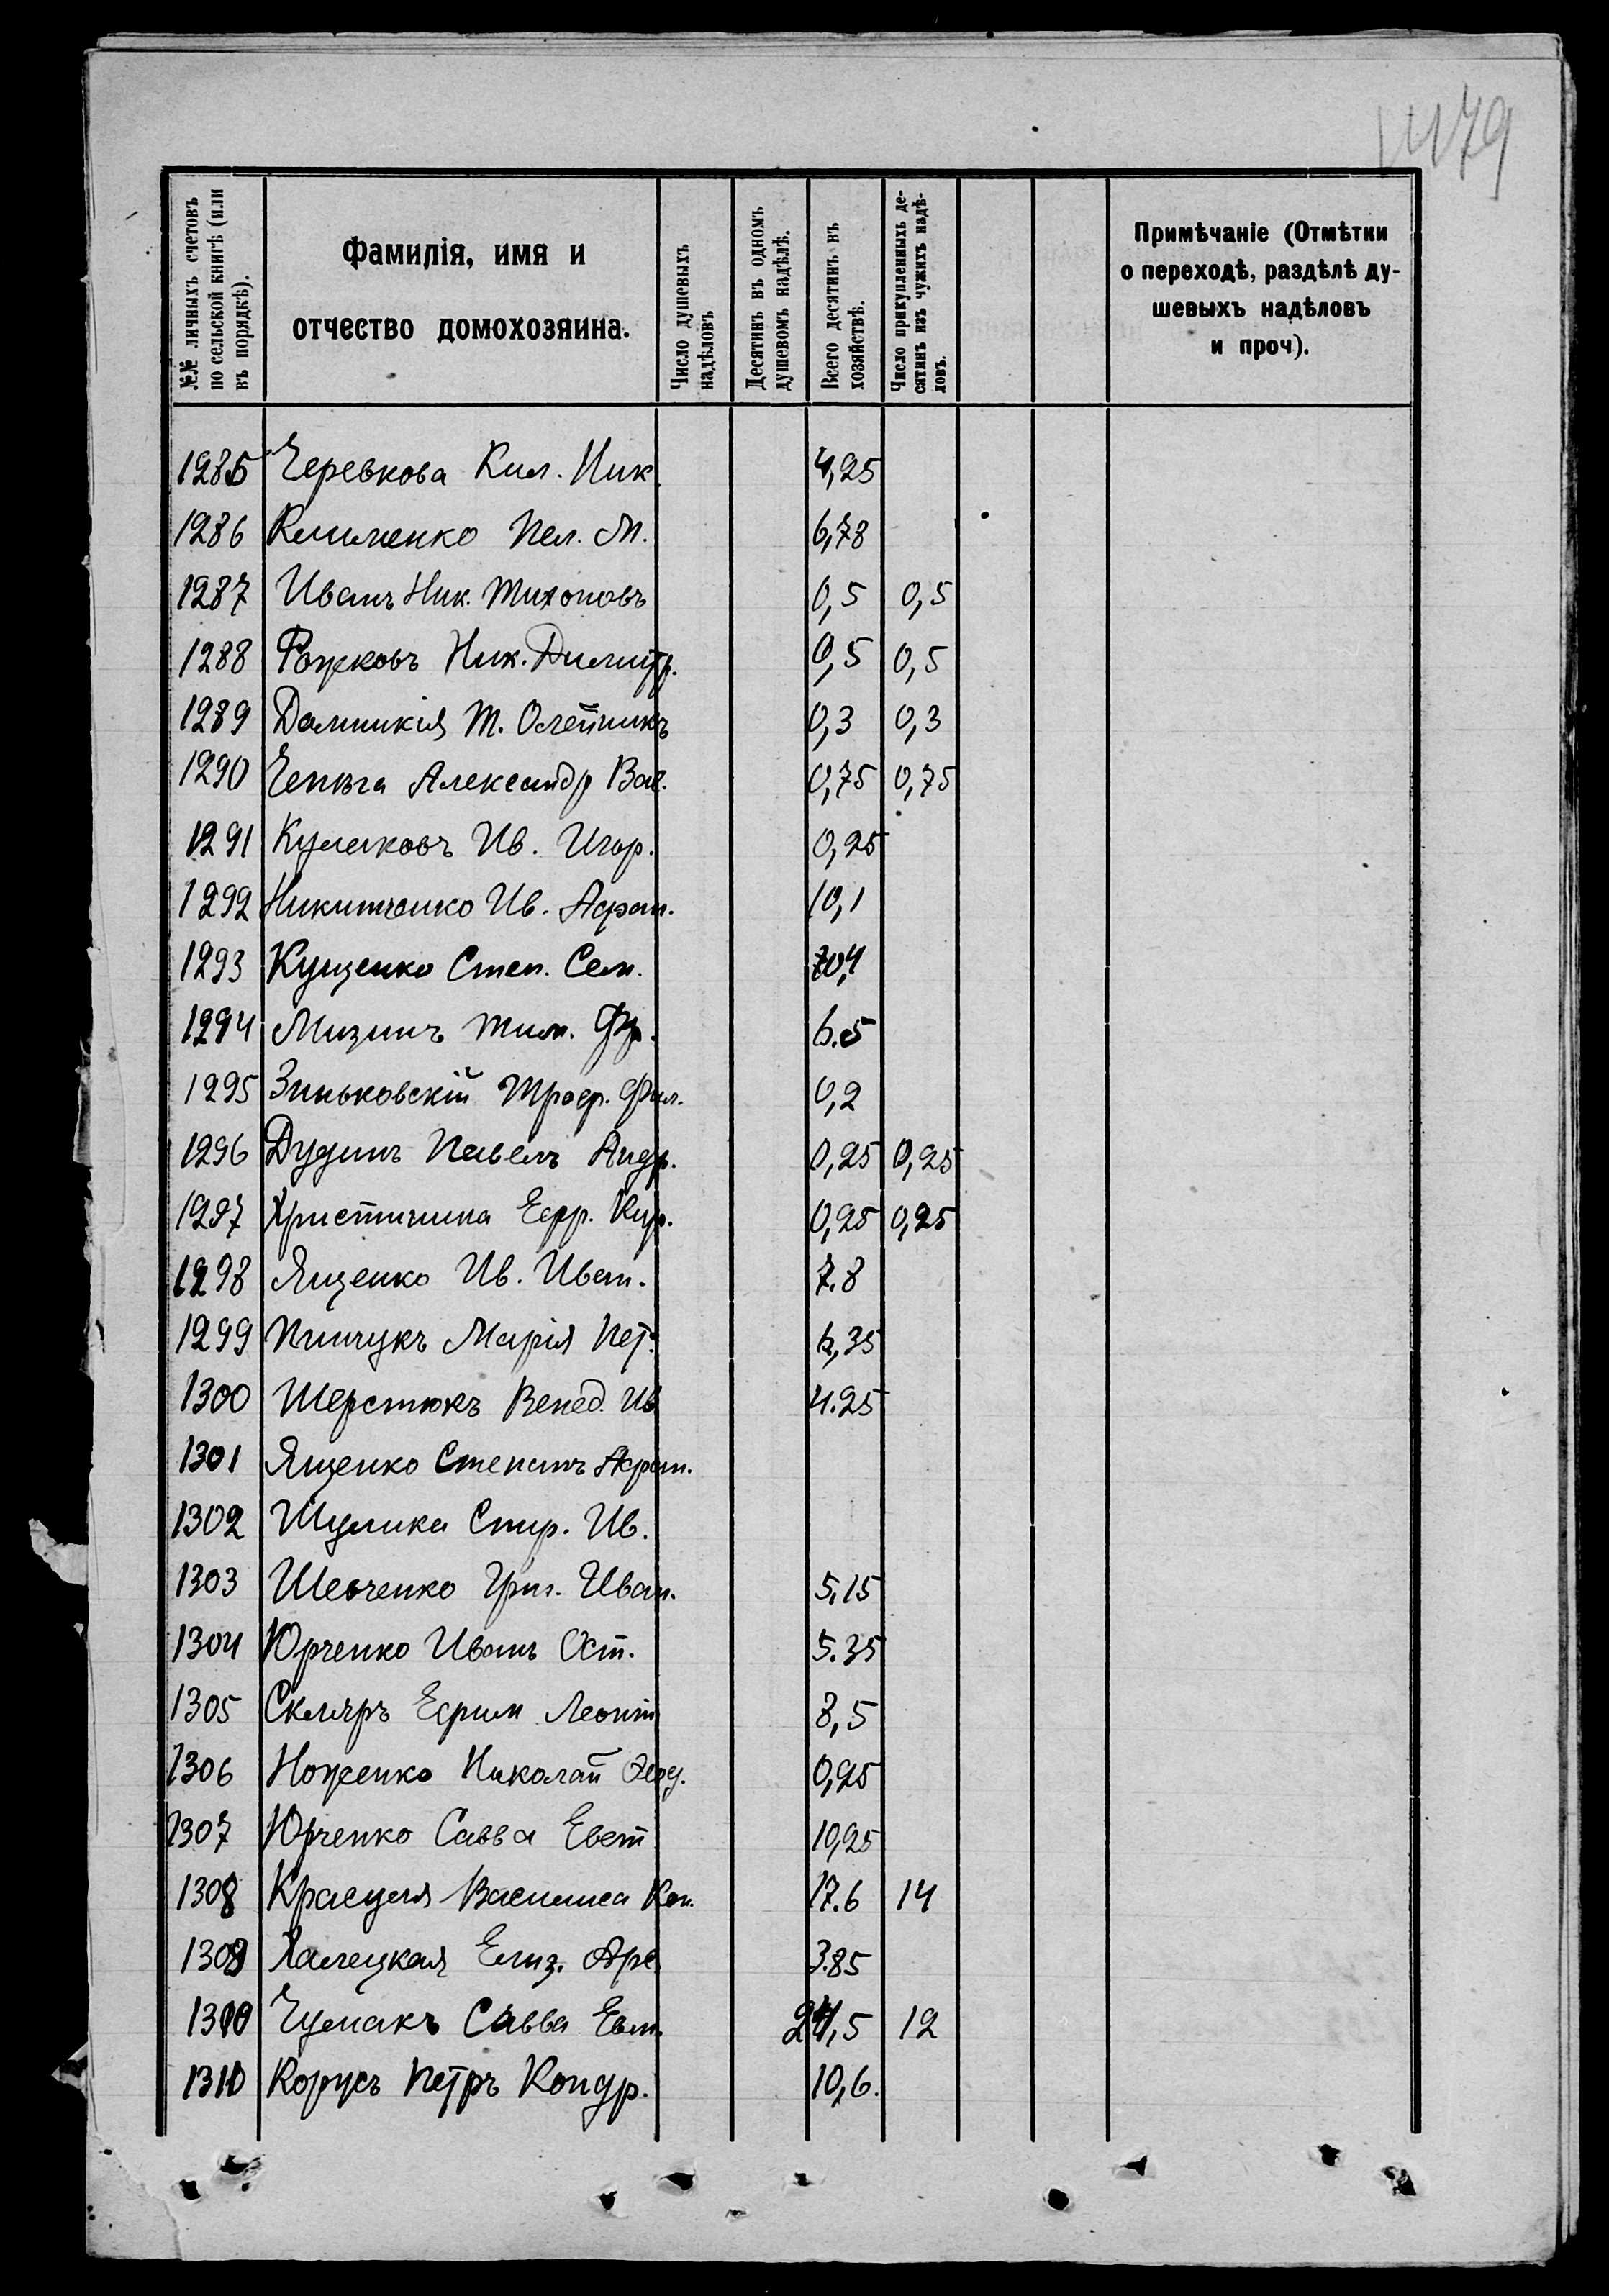 479
№№ личныхъ счетовъ по сельской книгѣ (или въ порядкѣ).
Фамилія, имя и отчество домохозяина.
Число душевыхъ надѣловъ
Десятинъ въ одномъ душевомъ надѣлѣ.
Всего десятинъ въ хозяйствѣ.
Число прикупленныхъ десятинъ изъ чужихъ надѣловъ.
Примѣчаніе (Отмѣтки о переходѣ, раздѣлѣ душевыхъ надѣловъ и проч).
1285 Черевкова Кил. Ник. 4,25
1286 Клименко Пел. М. 6,78
1287 Иванъ Ник. Тихоновъ 0,5 0,5
1288 Рожковъ Ник. Димитр. 0,5 0,5
1289 Домникія Т. Олейникъ 0,3 0,3
1290 Чепѣга Александр Вас. 0,75 0,75
1291 Кулаковъ Ив. Игор. 0,25
1292 Никитченко Ив. Афан. 10,1
1293 Кущенко Степ. Сем.
1294 Мизинъ Тим. 6.5
1295 Зиньковскій Троф. Фил. 0,2
1296 Дудинъ Павелъ Андр. 0,25 0,25
1297 Христичина Ефр. Кир. 0,25 0,25
1298 Ященко Ив. Иван. 7.8
1299 Пинчукъ Марія Пет. 6,35
1300 Шерстюкъ Венед. Ив 4.25
1301 Ященко Степанъ Афан.
1302 Шулика Спир. Ив.
1303 Шевченко Григ. Иван. 5,15
1304 Юрченко Иванъ Ост. 5.35
1305 Скляръ Ефим Леонт 8,5
1306 Ноженко Николай 0,25
1307 Юрченко Савва Евст 10,25
1308 Красуля Василиса Кон. 17.6 14
1309 Халецкая Елиз. Арс 3.85
1310 Чумакъ Савва Евт. 24,5 12
1310 Корусъ Петръ Кондр. 10,6.